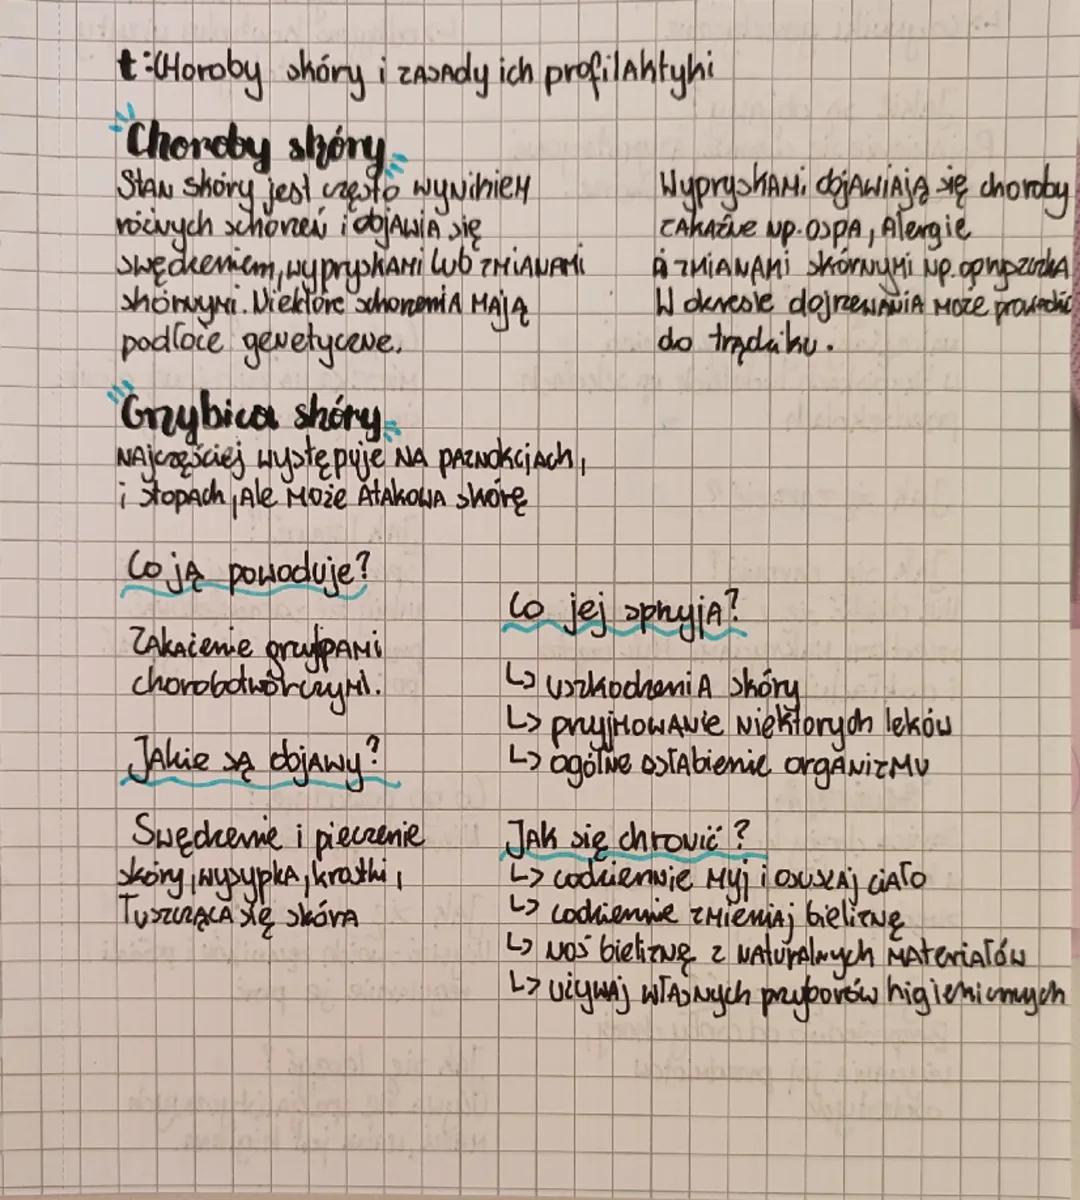 t: CHoroby skóry i zasady ich profilaktyki
Choroby skóry
Stan skóry jest często wynikiem
różnych schorzeń i objawia się
swędzeniem, wypryskami lub zmianami
skórnymi. Niektóre schorzenia mają
podłoże genetyczne.
Wypryskami objawiają się choroby
zakaźne np. ospa, Alergie
a zmianami skórnymi np. opryszczka
W okresie dojrzewania może prowadzić
do trądziku.
Grzybica skóry
Najczęściej występuje na paznokciach,
i stopach, Ale może Atakowa skórę
Co ją powoduje?
Zakażenie grzybami
chorobotwórczymi.
Jakie są objawy?
Swędzenie i pieczenie
skóry, wysypka, krostki,
Łuszcząca się skóra
Co jej sprzyja?
↳ uszkodzenia skóry
↳ przyjmowanie niektorych leków
↳ ogólne osłabienie organizmu
Jak się chronić?
↳ codziennie myj i osuszaj ciało
↳ codziennie zmieniaj bieliznę
↳ noś bieliznę z naturalnych materiałów
↳ używaj własnych przyborów higienicznych